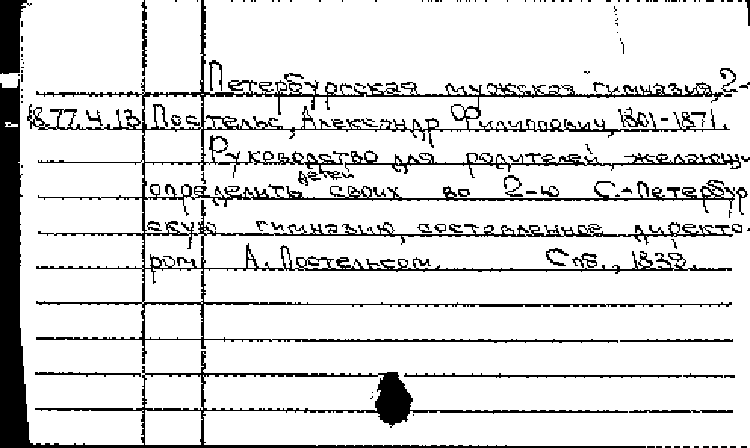 Петербургская мужская гимназия, 2-
1877.4.13 Постельс, Александр Филиппович, 1801-1871.
Руководство для родителей, желающи
детей
определить своих во 2-ю С.-Петербур
скую гимназию, составленное директо-
ром А. Постельсом. Спб., 1838.